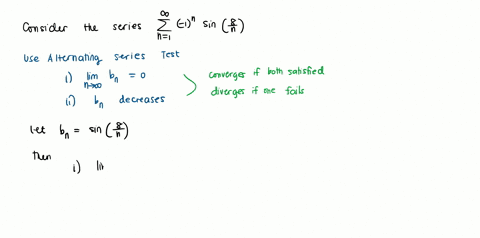 Consider the series ∞ Σ n=1 (-1)^n sin (8/n)
Use Alternating series Test
i) lim n→∞ b_n = 0
ii) b_n decreases
converges if both satisfied
diverges if one fails
let b_n = sin (8/n)
then
i) li